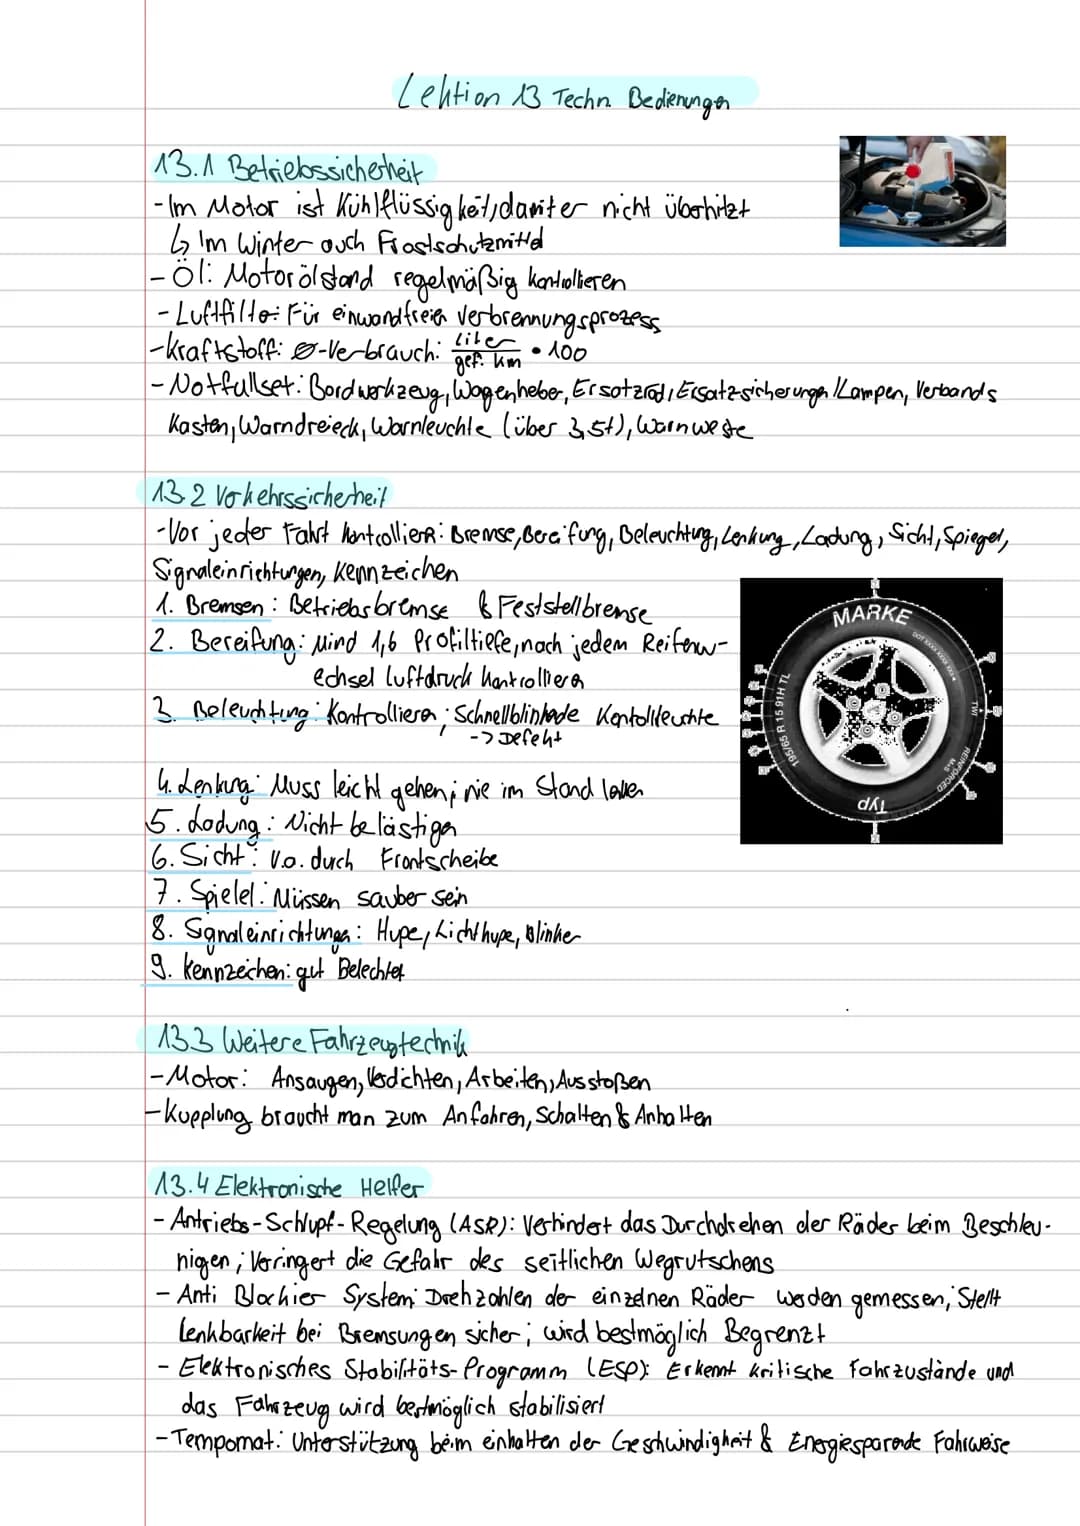 Lektion 13 Techn. Bedienungen
13.1 Betriebssicherheit
- Im Motor ist Kühlflüssigkeit, damit er nicht überhitzt
↳ Im Winter auch Frostschutzmittel
- Öl: Motorölstand regelmäßig kontrollieren
- Luftfilter: Für einwandfreien Verbrennungsprozess
- Kraftstoff: Ø-Verbrauch: Liter / gef. km • 100
- Notfallset: Bordwerkzeug, Wagenheber, Ersatzrad, Ersatzsicherungen/Lampen, Verbands
kasten, Warndreieck, Warnleuchte (über 3,5t), Warnweste
13.2 Verkehrssicherheit
- Vor jeder Fahrt kontrollieren: Bremse, Bereifung, Beleuchtung, Lenkung, Ladung, Sicht, Spiegel,
Signaleinrichtungen, Kennzeichen
1. Bremsen: Betriebsbremse & Feststellbremse
2. Bereifung: Mind 1,6 Profiltiefe, nach jedem Reifenw-
echsel Luftdruck kontrollieren
3. Beleuchtung: Kontrollieren; Schnellblinkende Kontollleuchte
-> Defekt
4. Lenkung: Muss leicht gehen; nie im Stand
5. Ladung: Nicht belästigen
6. Sicht: v.a. durch Frontscheibe
7. Spielel: Müssen sauber sein
8. Signaleinrichtungen: Hupe, Lichthupe, Blinker
9. Kennzeichen: gut Belechtet
MARKE
DOT XXXX XXXX XXX
TWI
REINFORCED
M+S
TYP
195/65 R 15 91H TL
13.3 Weitere Fahrzeugtechnik
- Motor: Ansaugen, Verdichten, Arbeiten, Ausstoßen
- Kupplung braucht man zum Anfahren, Schalten & Anhalten
13.4 Elektronische Helfer
- Antriebs-Schlupf-Regelung (ASR): Verhindert das Durchdrehen der Räder beim Beschleu-
nigen; Verringert die Gefahr des seitlichen Wegrutschens
- Anti Blockier System: Drehzahlen der einzelnen Räder werden gemessen; Stellt
Lenkbarkeit bei Bremsungen sicher; wird bestmöglich Begrenzt
- Elektronisches Stabilitäts-Programm (ESP): Erkennt kritische Fahrzustände und
das Fahrzeug wird bestmöglich stabilisiert
- Tempomat: Unterstützung beim einhalten der Geschwindigkeit & Energiesparende Fahrweise